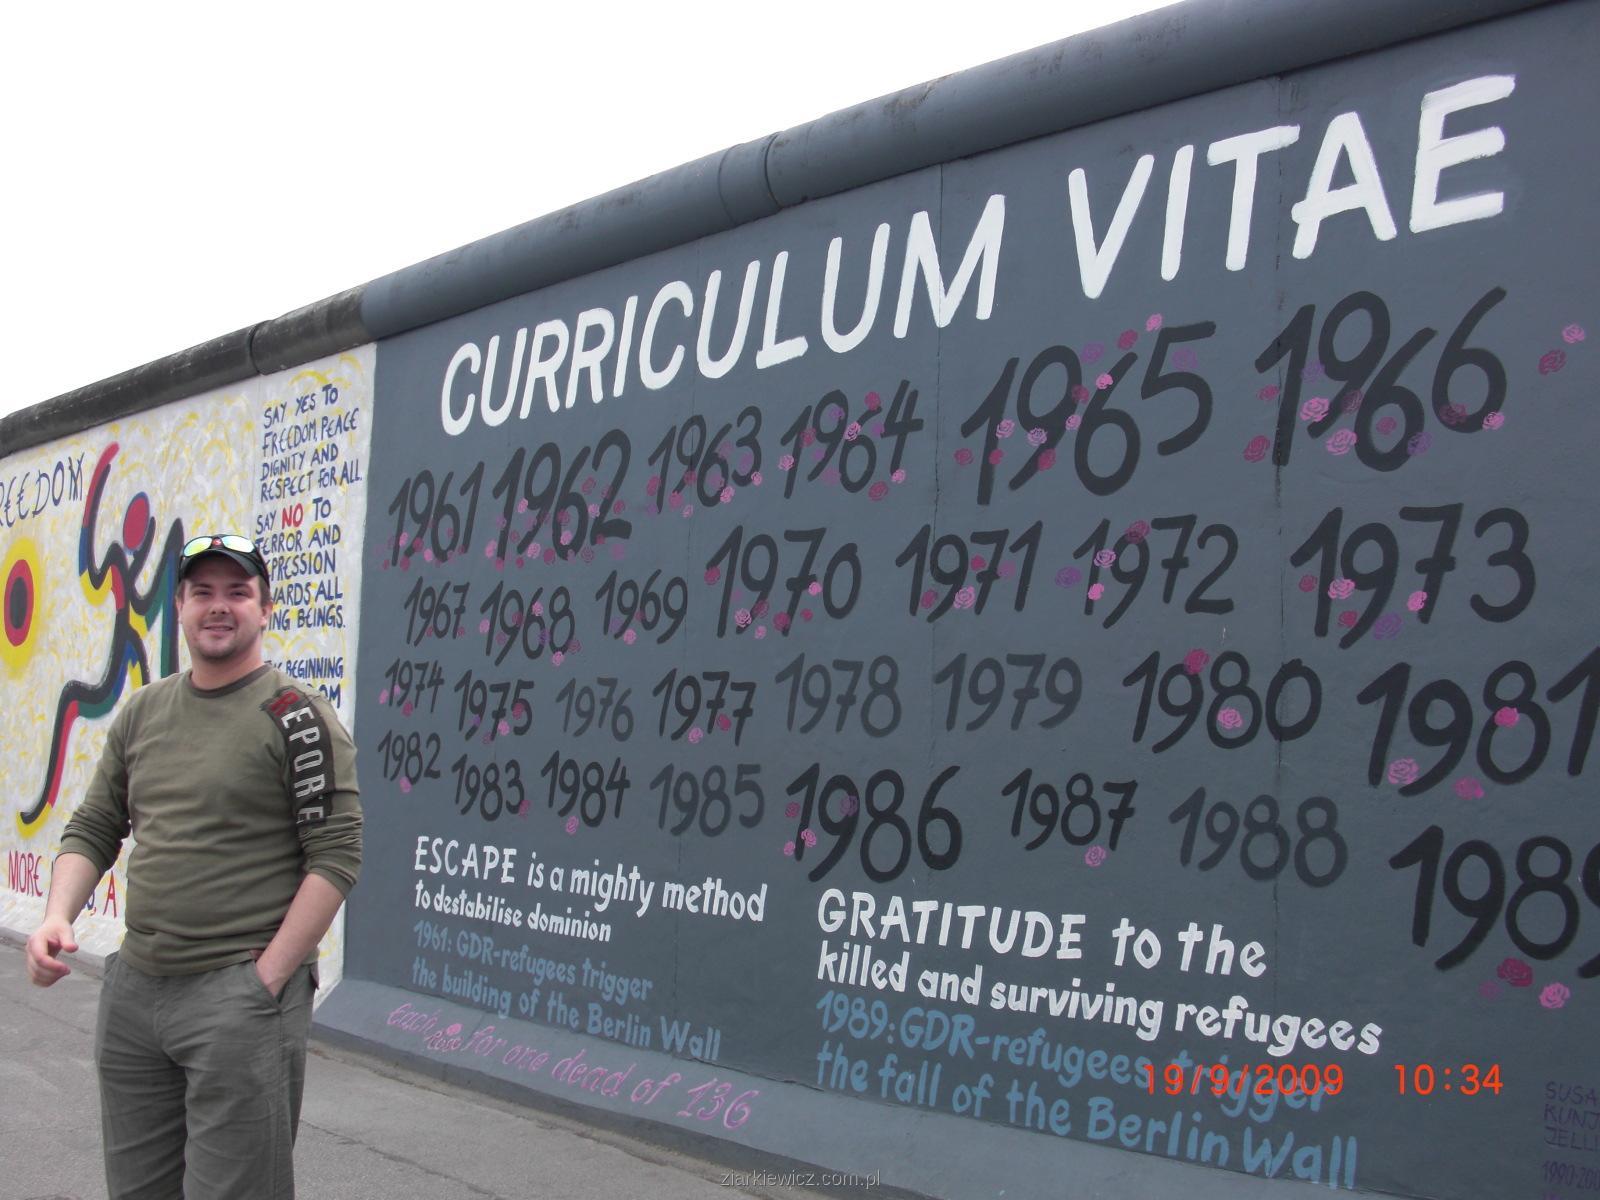 REEDOM
SAY YES TO
FREEDOM, PEACE
DIGNITY AND
RESPECT FOR ALL.
SAY NO TO
TERROR AND
PRESSION
WARDS ALL
ING BEINGS.
BEGINNING
OM
MORE
A
REPORE
CURRICULUM VITAE
1961 1962 1963 1964 1965 1966
1967 1968 1969 1970 1971 1972 1973
1974 1975 1976 1977 1978 1979 1980 1981
1982 1983 1984 1985 1986 1987 1988 1989
ESCAPE is a mighty method
to destabilise dominion
1961: GDR-refugees trigger
the building of the Berlin Wall
Each rose for one dead of 136
GRATITUDE to the
killed and surviving refugees
1989: GDR-refugees trigger
the fall of the Berlin Wall
SUSA
KUNJ
JELL
19/9/2009 10:34
ziarkiewicz.com.pl